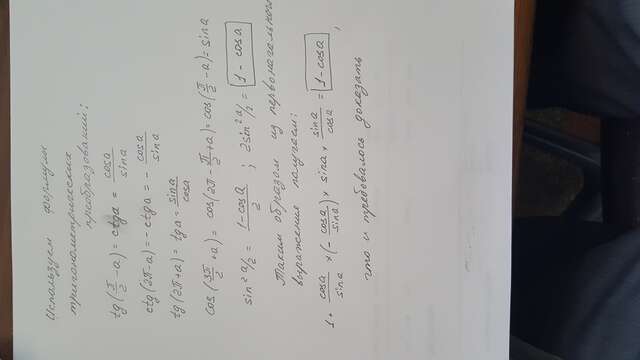 Используем формулы
тригонометрических
преобразований:
tg(π/2 - a) = ctga = cosa/sina
ctg(2π-a) = -ctga = - cosa/sina
tg(2π+a) = tga = sina/cosa
cos(3π/2 + a) = cos(2π - π/2 + a) = cos(π/2 - a) = sina
sin² a/2 = 1-cosa/2 ; 2sin² a/2 = 1 - cosa
Таким образом из первоначального
выражения получаем:
1 + cosa/sina × (- cosa/sina) × sina × sina/cosa = 1 - cosa ,
что и требовалось доказать